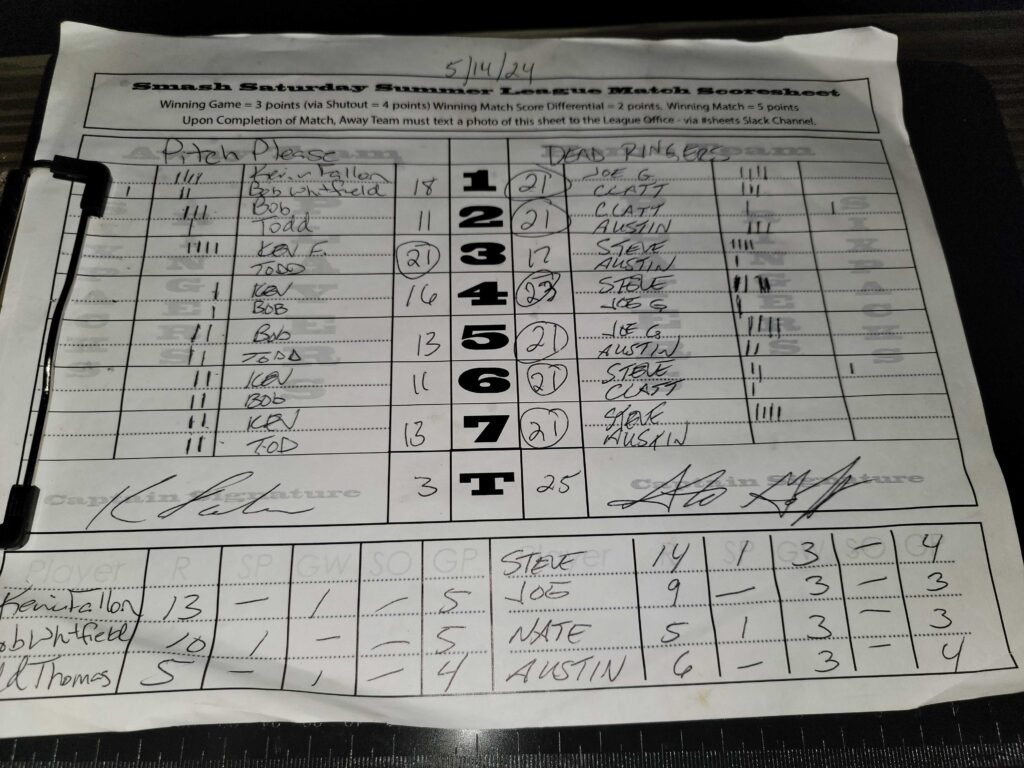 5/14/24
Smash Saturday Summer League Match Scoresheet
Winning Game = 3 points (via Shutout = 4 points) Winning Match Score Differential = 2 points, Winning Match = 5 points
Upon Completion of Match, Away Team must text a photo of this sheet to the League Office - via #sheets Slack Channel.
Pitch Please DEAD RINGERS
Kevin Fallon 1 JOE G
Bob Whitfield 18 21 CLATT
Bob 11 2 21 CLATT
Todd AUSTIN
KEN F. 21 3 17 STEVE
TODD AUSTIN
KEN 16 4 23 STEVE
BOB JOE G
Bob 13 5 21 JOE G
TODD AUSTIN
KEN 11 6 21 STEVE
BOB CLATT
KEN 13 7 21 STEVE
TOD AUSTIN
3 T 25
Captain Signature Captain Signature
Player R SP GW SO GP STEVE 14 1 3 — 4
Kevin Fallon 13 — 1 — 5 JOE 9 — 3 — 3
ob Whitfield 10 1 — — 5 NATE 5 1 3 — 3
ld Thomas 5 — 1 — 4 AUSTIN 6 — 3 — 4